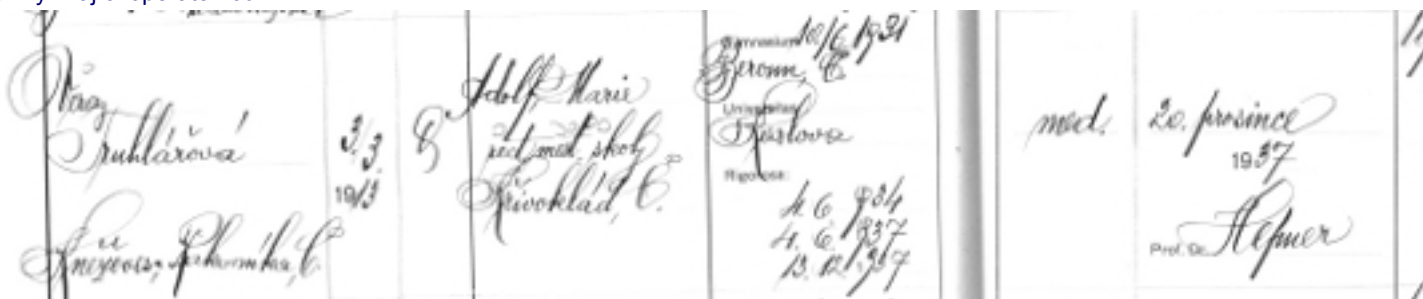 Věra
Truhlářová
Kněževes, Rakovník, Č.
3/3
1913
Č
Adolf, Marie
řed. měšť. školy
Křivoklád, Č.
Gymnasium 10/6 1931
Beroun, Č.
Universitas
Karlova
Rigorosa:
4. 6. 934
4. 6. 937
13. 12. 937
med.
20. prosince
1937
Prof. Dr. Hepner